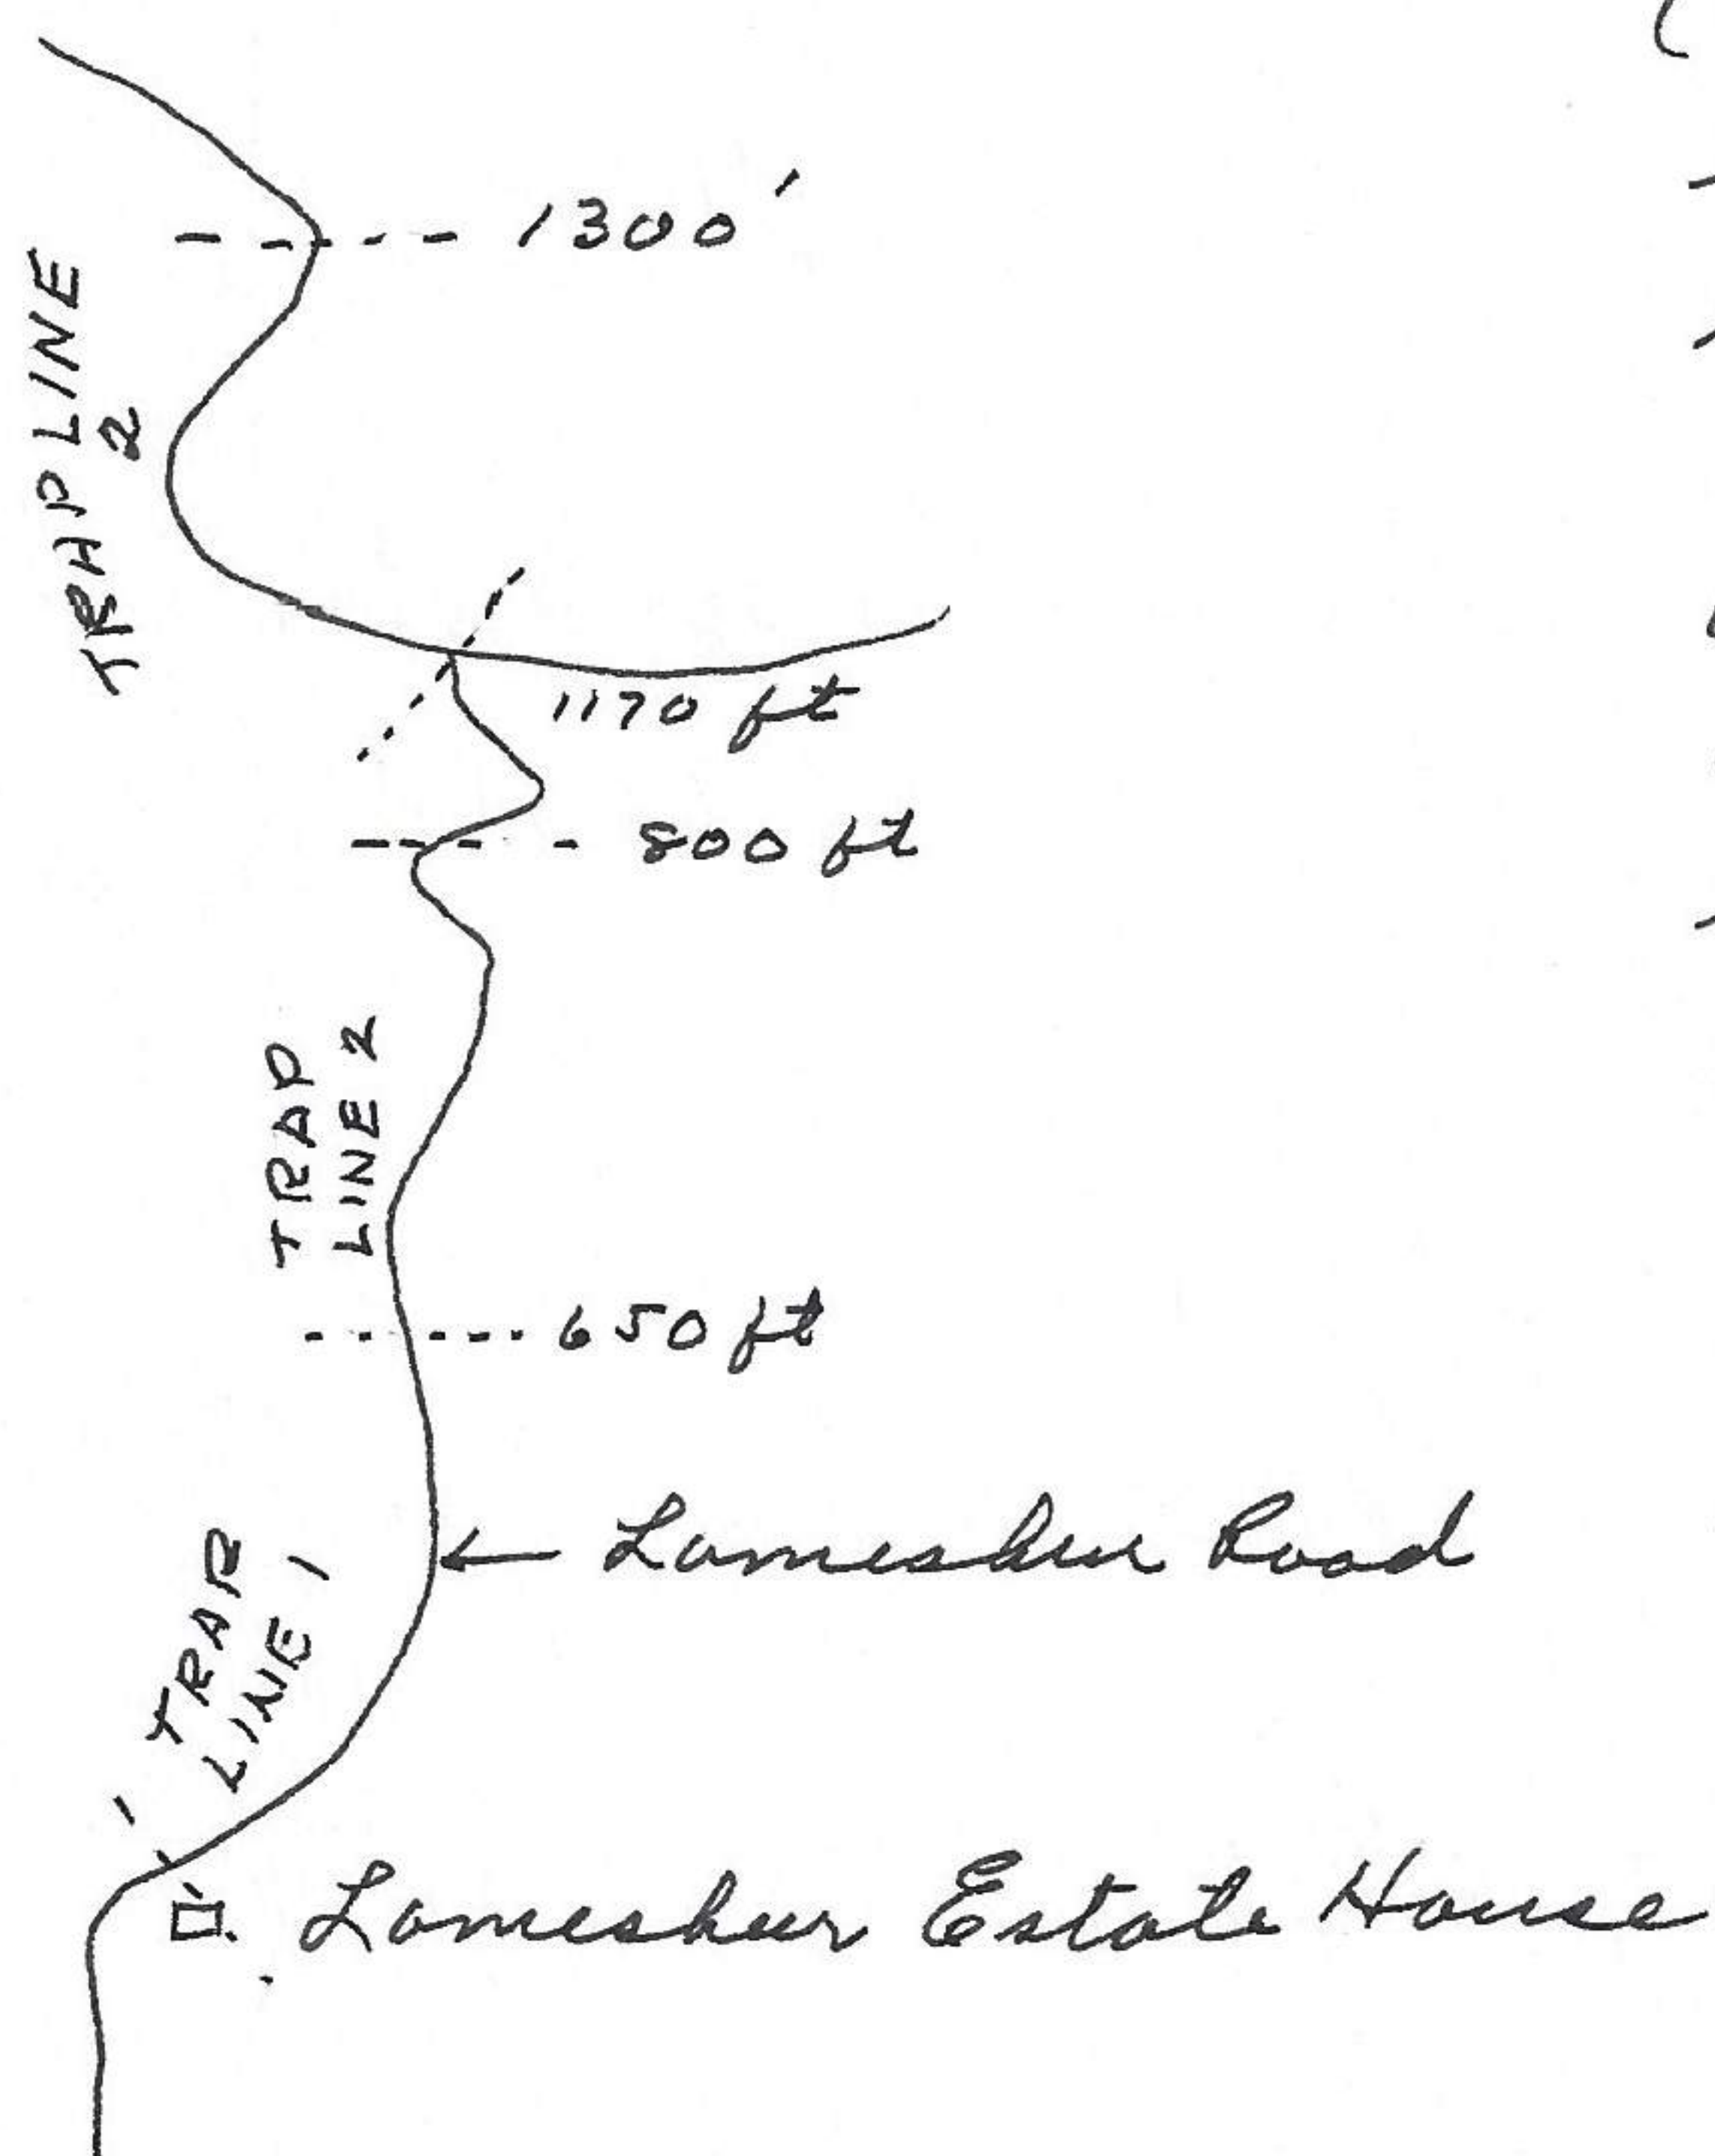 1300'
TRAP LINE
2
1170 ft
800 ft
TRAP
LINE 2
650 ft
Lameshur Road
TRAP
LINE 1
Lameshur Estate House